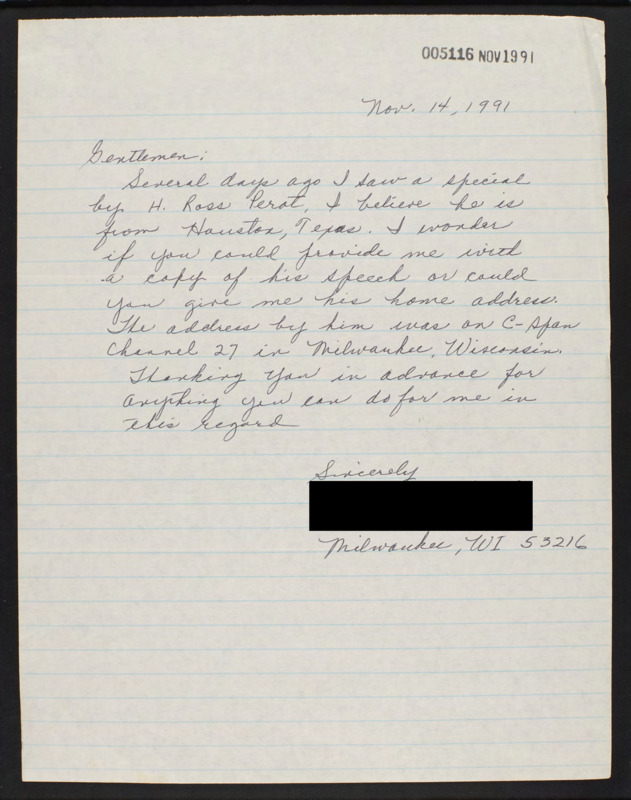 005116 NOV1991
Nov. 14, 1991
Gentlemen:
Several days ago I saw a special
by H. Ross Perot, I believe he is
from Houston, Texas. I wonder
if you could provide me with
a copy of his speech or could
you give me his home address.
The address by him was on C-Span
Channel 27 in Milwaukee, Wisconsin.
Thanking you in advance for
anything you can do for me in
this regard
Sincerely
Milwaukee, WI 53216